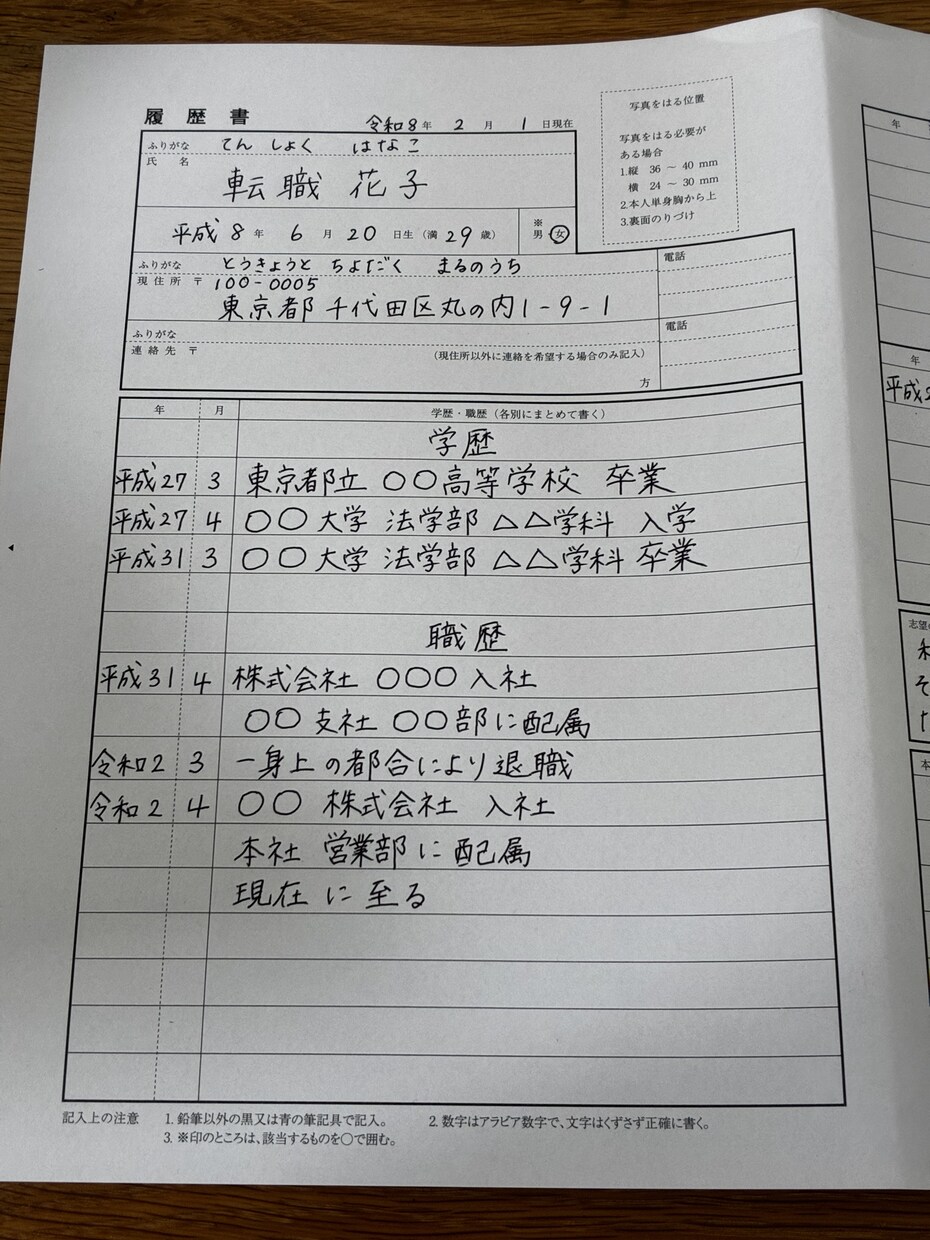 履歴書 令和8年 2月 1日現在
ふりがな てん しょく はなこ
氏名
転職 花子
平成8年 6月 20日生(満29歳) ※ 男 女
ふりがな とうきょうと ちよだく まるのうち
現住所 〒 100-0005
東京都千代田区丸の内1-9-1
電話
ふりがな
連絡先 〒 (現住所以外に連絡を希望する場合のみ記入)
方
電話
写真をはる位置
写真をはる必要が
ある場合
1.縦 36 ～ 40 mm
横 24 ～ 30 mm
2.本人単身胸から上
3.裏面のりづけ
年 月 学歴・職歴(各別にまとめて書く)
学歴
平成27 3 東京都立 〇〇高等学校 卒業
平成27 4 〇〇大学 法学部 △△学科 入学
平成31 3 〇〇大学 法学部 △△学科 卒業
職歴
平成31 4 株式会社 〇〇〇 入社
〇〇支社 〇〇部に配属
令和2 3 一身上の都合により退職
令和2 4 〇〇 株式会社 入社
本社 営業部に配属
現在に至る
記入上の注意 1.鉛筆以外の黒又は青の筆記具で記入。 2.数字はアラビア数字で、文字はくずさず正確に書く。
3.※印のところは、該当するものを○で囲む。
年
年
平成2
志望の
そ
本